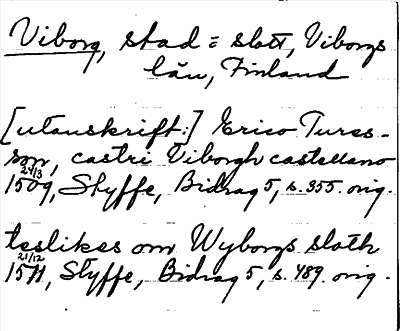 Viborg, stad = slott, Viborgs
län, Finland
[utanskrift:] Erico Turss-
son, castri Viborgh castellano
24/3
1509, Styffe, Bidrag 5, s. 355. orig.
teslikes om Wyborgs sloth
21/12
1511, Styffe, Bidrag 5, s. 489. orig.